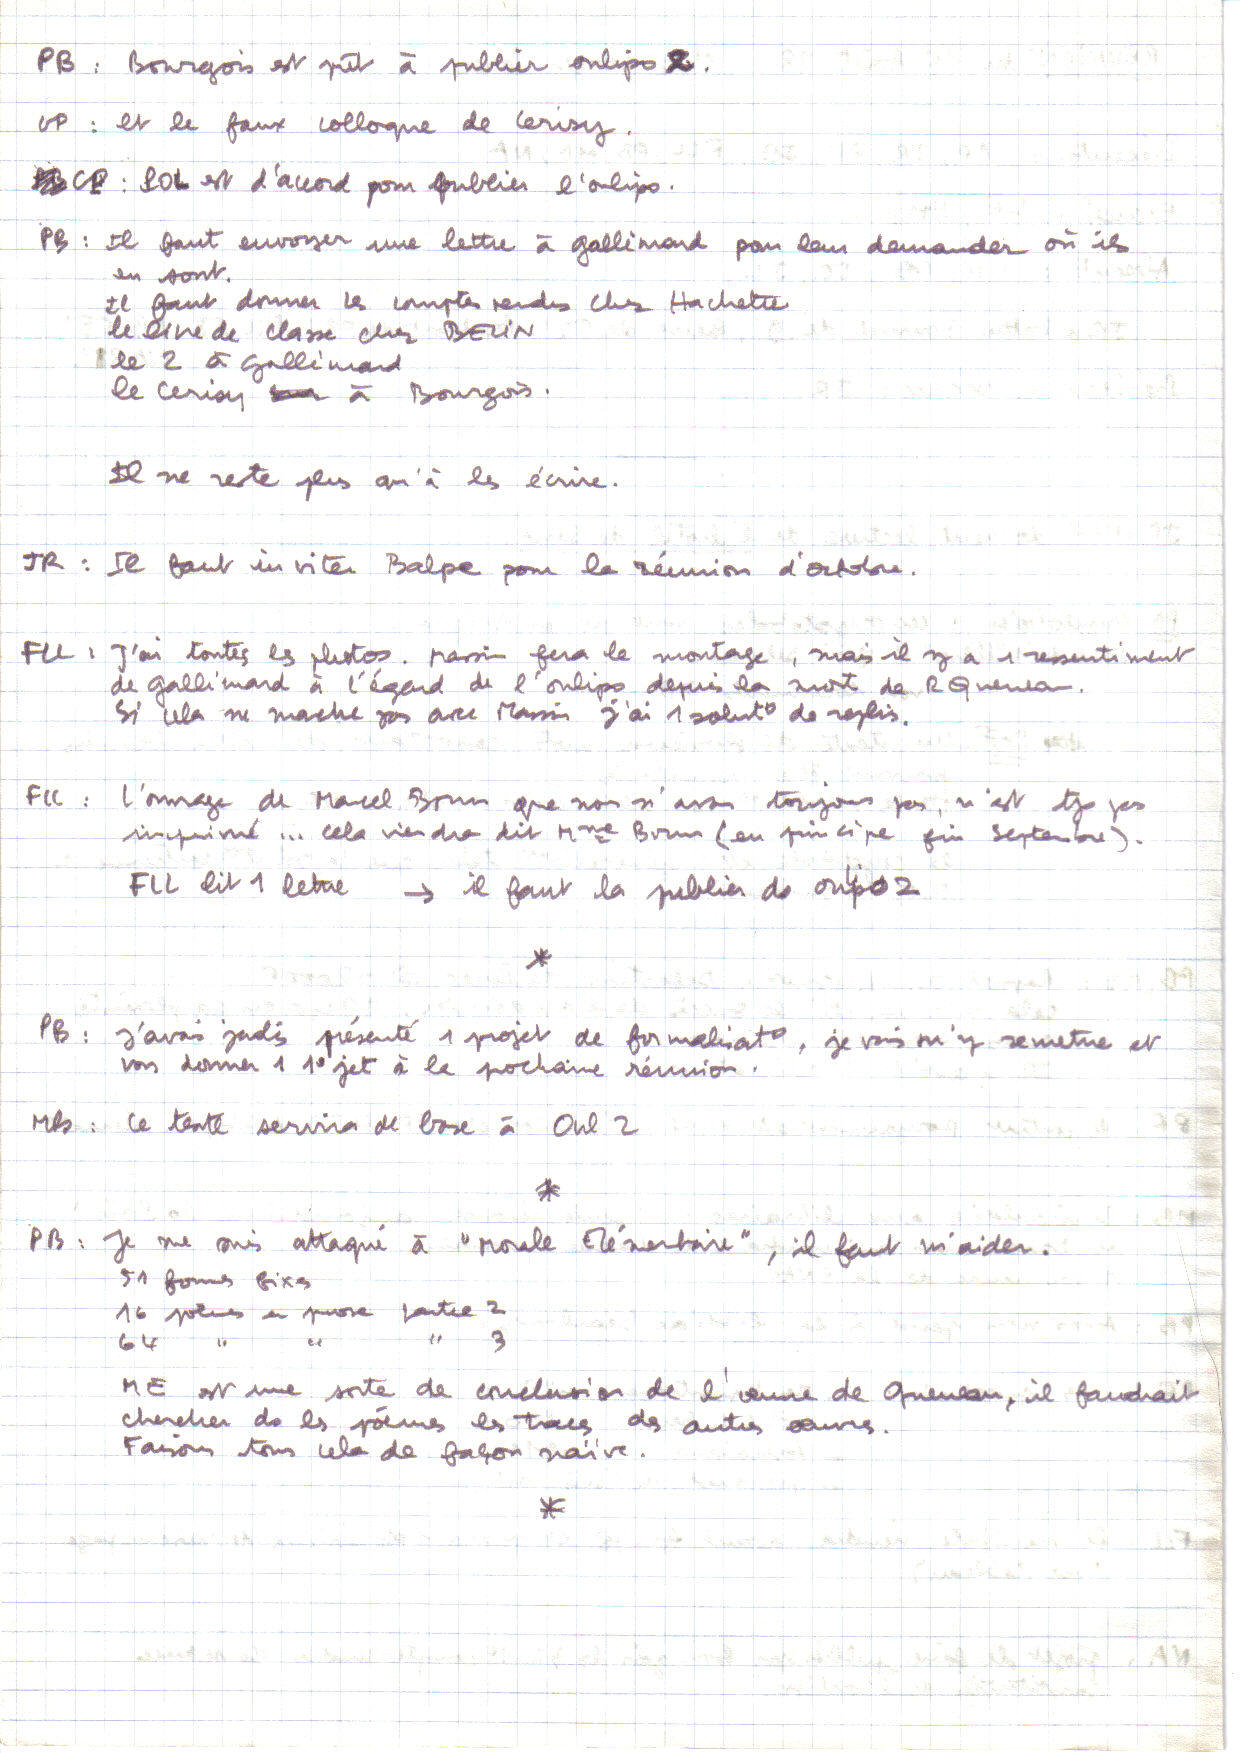 PB : Bourgois est prêt à publier oulipo 2.
GP : et le faux colloque de Cerisy.
CB : POL est d'accord pour publier l'oulipo.
PB : Il faut envoyer une lettre à Gallimard pour leur demander où ils
en sont.
Il faut donner les comptes rendus chez Hachette
le livre de classe chez BELIN
le 2 à Gallimard
le Cerisy à Bourgois.
Il ne reste plus qu'à les écrire.
JR : Il faut inviter Balpe pour la réunion d'octobre.
FLL : J'ai toutes les photos. Massin fera le montage, mais il y a 1 ressentiment
de Gallimard à l'égard de l'oulipo depuis la mort de R Queneau.
Si cela ne marche pas avec Massin j'ai 1 solut° de replis.
FLL : L'ouvrage de Marcel Brun que nous n'avons toujours pas, n'est tjs pas
imprimé ... cela viendra dit Mme Brun (en principe fin Septembre).
FLL lit 1 lettre → il faut la publier ds oulipo 2
*
PB : J'avais jadis présenté 1 projet de formalisat°, je vais m'y remettre et
vous donner 1 1° jet à la prochaine réunion.
MB : Ce texte servira de base à Oul 2
*
PB : Je me suis attaqué à "Morale Elémentaire", il faut m'aider.
51 formes fixes
16 poèmes en prose partie 2
64 " " " 3
ME est une sorte de conclusion de l'œuvre de Queneau, il faudrait
chercher ds les poèmes les traces des autres œuvres.
Faisons tous cela de façon naïve.
*